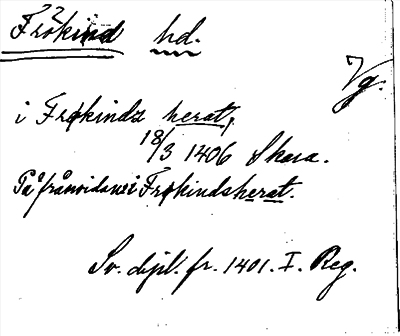 Frökind hd.
Vg.
i Frøkindz herat,
18/3 1406 Skara.
På frånsidan: i Frøkindsherat.
Sv. dipl. fr. 1401. I. Reg.